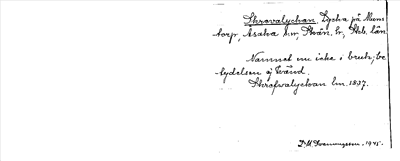 Skrovalyckan, Lycka på Muns
torp, Asaka sn, Skån. hd, Skb. län
Namnet nu icke i bruk; be
tydelsen ej känd.
Skrofwalyckan lm. 1837.
D. M. Svenungsson. 1945.